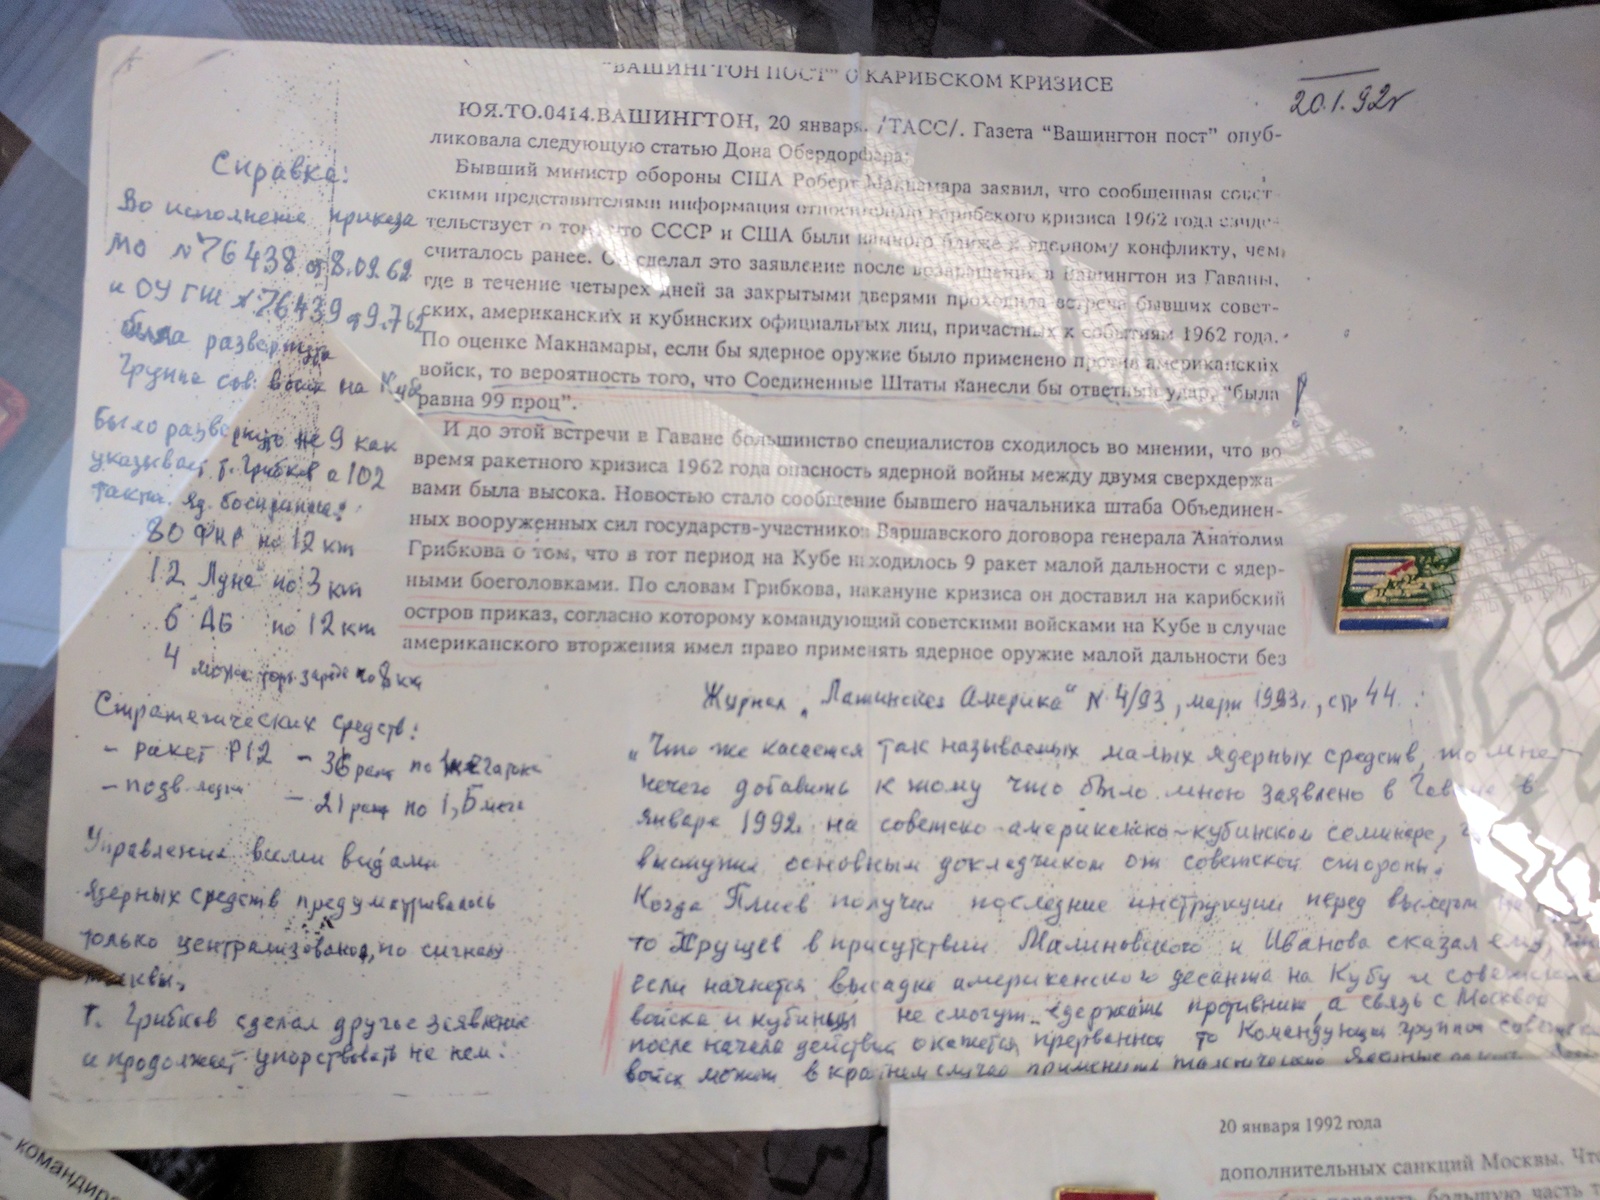 "ВАШИНГТОН ПОСТ" О КАРИБСКОМ КРИЗИСЕ
20.1.92г
ЮЯ.ТО.0414.ВАШИНГТОН, 20 января. /ТАСС/. Газета "Вашингтон пост" опуб-
ликовала следующую статью Дона Обердорфера:
Бывший министр обороны США Роберт Макнамара заявил, что сообщенная совет-
скими представителями информация относительно карибского кризиса 1962 года свиде-
тельствует о том, что СССР и США были намного ближе к ядерному конфликту, чем
считалось ранее. Он сделал это заявление после возвращения в Вашингтон из Гаваны,
где в течение четырех дней за закрытыми дверями проходила встреча бывших совет-
ских, американских и кубинских официальных лиц, причастных к событиям 1962 года.
По оценке Макнамары, если бы ядерное оружие было применено против американских
войск, то вероятность того, что Соединенные Штаты нанесли бы ответный удар, "была
равна 99 проц".
!
И до этой встречи в Гаване большинство специалистов сходилось во мнении, что во
время ракетного кризиса 1962 года опасность ядерной войны между двумя сверхдержа-
вами была высока. Новостью стало сообщение бывшего начальника штаба Объединен-
ных вооруженных сил государств-участников Варшавского договора генерала Анатолия
Грибкова о том, что в тот период на Кубе находилось 9 ракет малой дальности с ядер-
ными боеголовками. По словам Грибкова, накануне кризиса он доставил на карибский
остров приказ, согласно которому командующий советскими войсками на Кубе в случае
американского вторжения имел право применять ядерное оружие малой дальности без
Справка:
Во исполнение приказа
МО №76438 от 8.09.62
и ОУ ГШ №76439 от 9.
была развернута
Группа сов. войск на Кубе
Было развернуто не 9 как
указывает т. Грибков а 102
такт. яд. боеприпаса:
80 ФКР по 12 кт
12 "Луна" по 3 кт
6 АБ по 12 кт
4 по 8 кт
Стратегических средств:
- ракет Р12 - 36 ракет по
- подв. лодки - 21 ракет по 1,5 мега
Управление всеми видами
ядерных средств предусматривалось
только централизованно, по сигналу
Москвы.
Т. Грибков сделал другое заявление
и продолжает упорствовать на нем.
Журнал "Латинская Америка" N 4/93, март 1993г., стр 44:
"Что же касается так называемых малых ядерных средств, то мне
нечего добавить к тому что было мною заявлено в Гаване в
январе 1992 на советско-американско-кубинском семинаре,
выступил основным докладчиком от советской стороны.
Когда Плиев получил последние инструкции перед вылетом на
то Хрущев в присутствии Малиновского и Иванова сказал ему,
если начнется высадка американского десанта на Кубу и советские
войска и кубинцы не смогут сдержать противника, а связь с Москвой
после начала действий окажется прерванной то Командующий группой
войск может в крайнем случае применить тактические ядерные
20 января 1992 года
дополнительных санкций Москвы.
большую часть
– командир